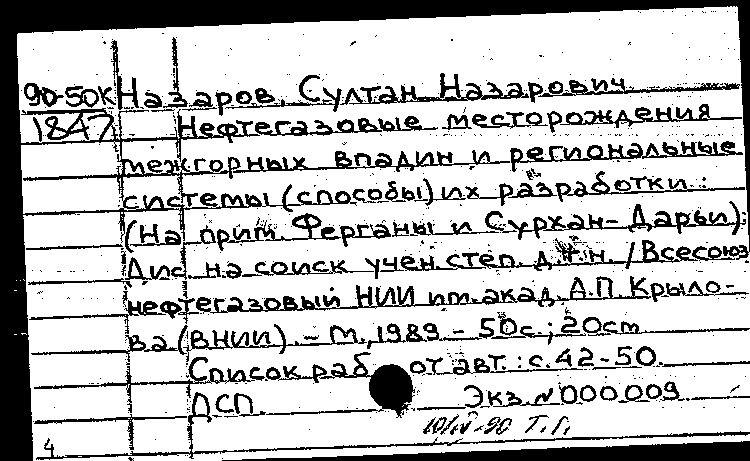 90-50К Назаров, Султан Назарович
1847 Нефтегазовые месторождения
межгорных впадин и региональные
системы (способы) их разработки.:
(На прим. Ферганы и Сурхан-Дарьи):
Дис. на соиск учен. степ. д.т.н. / Всесоюз
нефтегазовый НИИ им. акад. А.П. Крыло-
ва (ВНИИ). - М., 1989 - 50с.; 20см
Список раб от авт.: с. 42-50.
ДСП. Экз. N 000009
Т.Г.
4